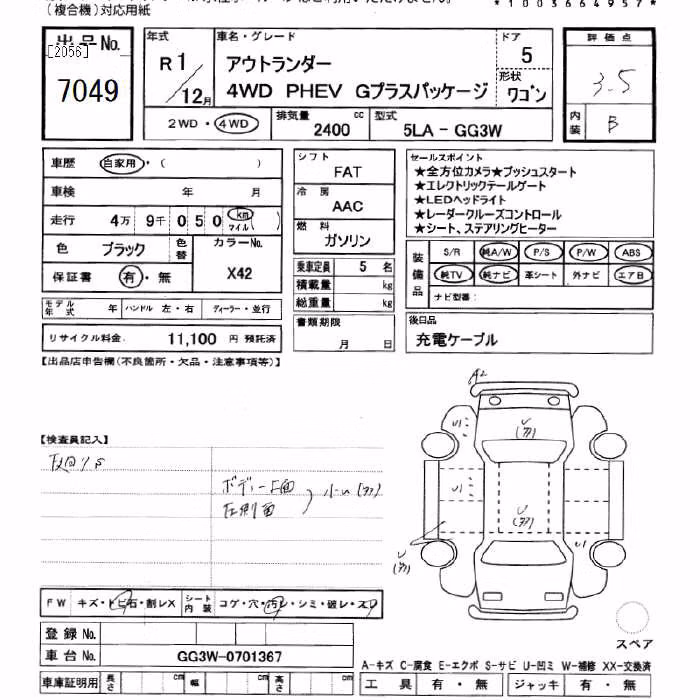 (複合機)対応用紙
*1003664957*
出品No.
[2056]
7049
年式
R1/12月
車名・グレード
アウトランダー
4WD PHEV Gプラスパッケージ
ドア
5
形状
ワゴン
評価点
3.5
内装
B
2WD・4WD
排気量
2400 cc
型式
5LA-GG3W
車歴 自家用・( )
車検 年 月
走行 4万 9千 050 km マイル ( )
色 ブラック
色替
カラーNo.
X42
保証書 有・無
モデル年式 年
ハンドル 左・右
ディーラー・並行
リサイクル料金: 11,100 円 預託済
シフト
FAT
冷房
AAC
燃料
ガソリン
乗車定員 5 名
積載量 kg
総重量 kg
書類期限
月 日
セールスポイント
★全方位カメラ★プッシュスタート
★エレクトリックテールゲート
★LEDヘッドライト
★レーダークルーズコントロール
★シート、ステアリングヒーター
装備品
S/R 純A/W P/S P/W ABS
純TV 純ナビ 革シート 外ナビ エアB
ナビ型番:
後日品
充電ケーブル
【出品店申告欄(不良箇所・欠品・注意事項等)】
【検査員記入】
ボディー上面
左側面
小U(スリ)
A2
U1
U
U1
U
U
U1
FW キズ・トビ石・割レX
シート内装 コゲ・穴・汚レ・シミ・破レ・スリ
登録No.
車台No. GG3W-0701367
車庫証明用 長さ cm 幅 cm 高さ cm
スペア
A-キズ C-腐食 E-エクボ S-サビ U-凹ミ W-補修 XX-交換済
工具 有・無 ジャッキ 有・無